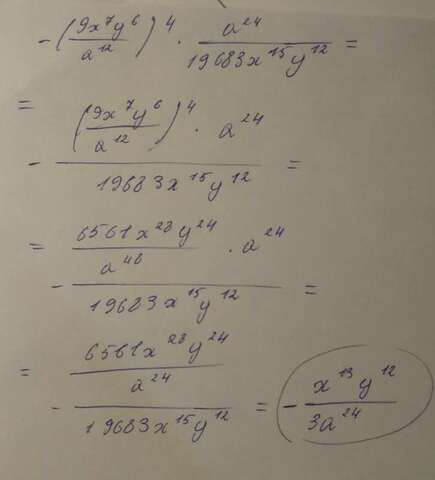 -(9x⁷y⁶/a¹²)⁴ · a²⁴/19683x¹⁵y¹² =
= -((9x⁷y⁶/a¹²)⁴ · a²⁴)/(19683x¹⁵y¹²) =
= -(6561x²⁸y²⁴/a⁴⁸ · a²⁴)/(19683x¹⁵y¹²) =
= -(6561x²⁸y²⁴/a²⁴)/(19683x¹⁵y¹²) = -x¹³y¹²/3a²⁴